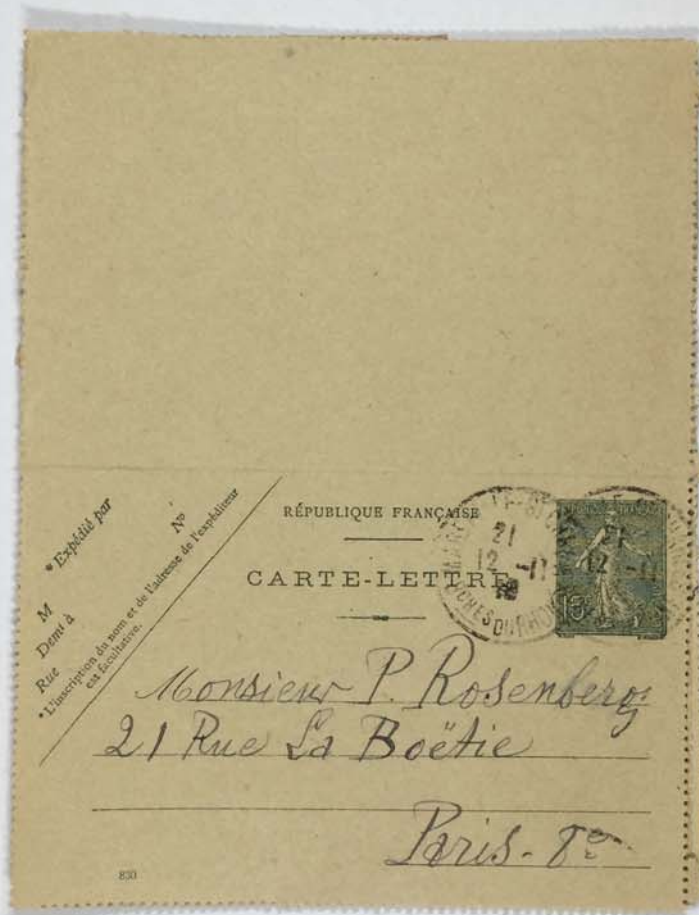 * Expédié par
M
Demt à
Rue Nº
* L'inscription du nom et de l'adresse de l'expéditeur
est facultative.
RÉPUBLIQUE FRANÇAISE
CARTE-LETTRE
21
12 -11
21
12 -11
15c
Monsieur P. Rosenberg
21 Rue La Boëtie
Paris - 8e
830